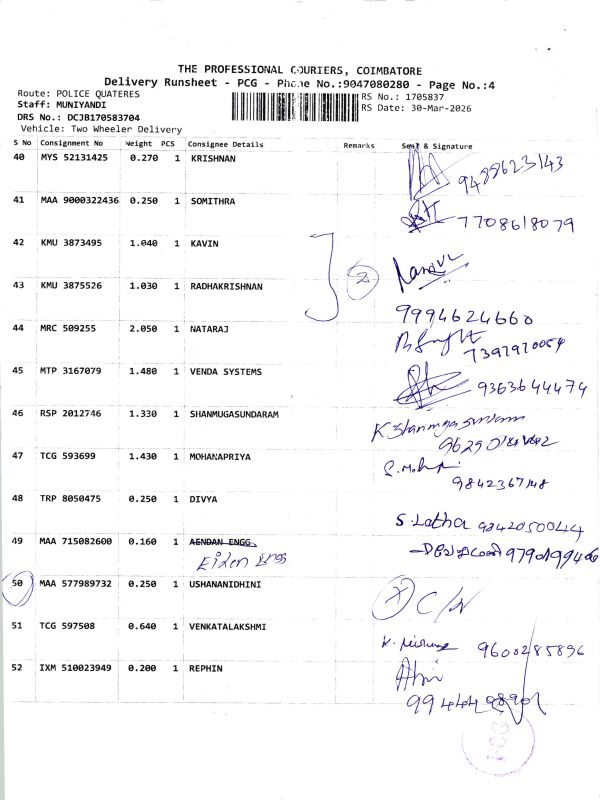 THE PROFESSIONAL COURIERS, COIMBATORE
Delivery Runsheet - PCG - Phone No.:9047080280 - Page No.:4
Route: POLICE QUATERES
RS No.: 1705837
Staff: MUNIYANDI
RS Date: 30-Mar-2026
DRS No.: DCJB170583704
Vehicle: Two Wheeler Delivery
S No Consignment No Weight PCS Consignee Details Remarks Seal & Signature
40 MYS 52131425 0.270 1 KRISHNAN
9488623143
41 MAA 9000322436 0.250 1 SOMITHRA
7708618079
42 KMU 3873495 1.040 1 KAVIN
2
43 KMU 3875526 1.030 1 RADHAKRISHNAN
9994624660
44 MRC 509255 2.050 1 NATARAJ
7397970054
45 MTP 3167079 1.480 1 VENDA SYSTEMS
9363644474
46 RSP 2012746 1.330 1 SHANMUGASUNDARAM
K Shanmugasundaram
47 TCG 593699 1.430 1 MOHANAPRIYA
9842367148
48 TRP 8050475 0.250 1 DIVYA
S. Latha 9842050044
49 MAA 715082600 0.160 1 AENDAN ENGG
Eiden Engg
9790199406
50 MAA 577989732 0.250 1 USHANANIDHINI
C/N
51 TCG 597508 0.640 1 VENKATALAKSHMI
9600285896
52 IXM 510023949 0.200 1 REPHIN
PCG